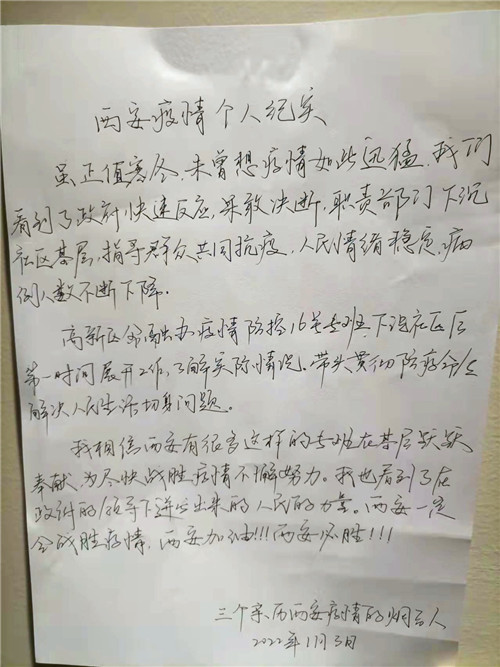 西安疫情个人纪实
虽正值寒冬，未曾想疫情如此迅猛，我们
看到了政府快速反应，果敢决断，职责部门下沉
社区基层，指导群众共同抗疫，人民情绪稳定，病
例人数不断下降。
高新区会商办疫情防控16号专班下沉社区后
第一时间展开工作，了解实际情况。带头贯彻防疫命令
解决人民生活切身问题。
我相信西安有很多这样的专班在基层默默
奉献，为尽快战胜疫情不懈努力。我也看到了在
政府的领导下迸发出来的人民的力量。西安一定
会战胜疫情，西安加油!!!西安必胜!!!
三个亲历西安疫情的烟台人
2022年1月3日